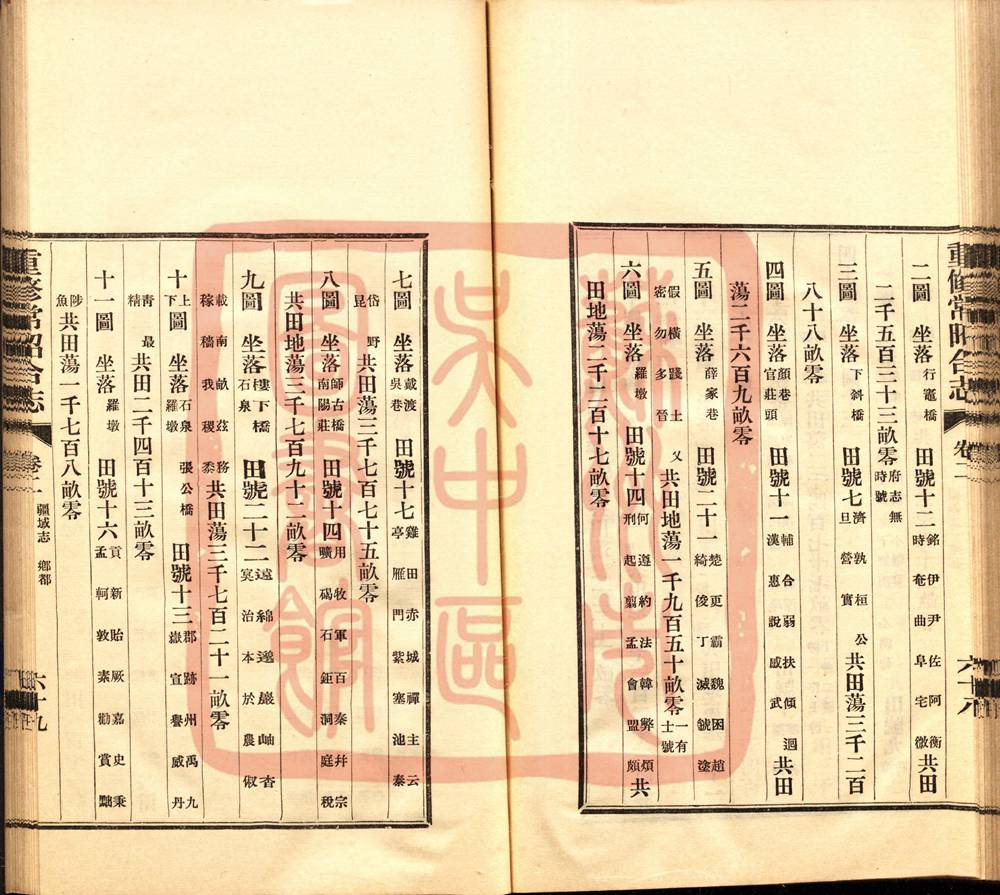 重修常昭合志 卷二 六十八
二圖 坐落行竈橋 田號十二銘伊尹佐阿衡時奄曲阜宅微共田
二千五百三十三畝零府志無時號
三圖 坐落下斜橋 田號七濟孰桓旦營實公共田蕩三千二百
八十八畝零
四圖 坐落顏巷官莊頭 田號十一輔合弱扶傾漢惠說感武迴共田
蕩二千六百九畝零
五圖 坐落薛家巷 田號二十一楚更霸魏困趙綺俊丁滅虢塗
假橫踐土密勿多晉乂共田地蕩一千九百五十畝零一有士號
六圖 坐落羅墩 田號十四何遵約法韓弊煩刑起翦孟會盟頗共
田地蕩二千二百十七畝零
七圖 坐落戴渡吳巷 田號十七雞田赤城禪主云亭雁門紫塞池秦
岱昆野共田蕩三千七百七十五畝零
八圖 坐落師古橋南陽莊 田號十四用牧軍百秦并宗曠碣石鉅洞庭稅
共田地蕩三千七百九十二畝零
九圖 坐落樓下橋石泉 田號二十二遠綿邈巖岫杳冥治本於農俶
載南畝茲務稼穡我稷黍共田蕩三千七百二十一畝零
十上下圖 坐落石泉羅墩張公橋 田號十三郡跡州禹九嶽宣譽威丹
青精最共田二千四百十三畝零
十一圖 坐落羅墩 田號十六貢新貽厥嘉史秉孟軻敦素勸賞黜
陟魚共田蕩一千七百八畝零
重修常昭合志 卷二 疆域志 鄉都 六十九
蘇州市
吳中區
圖書館